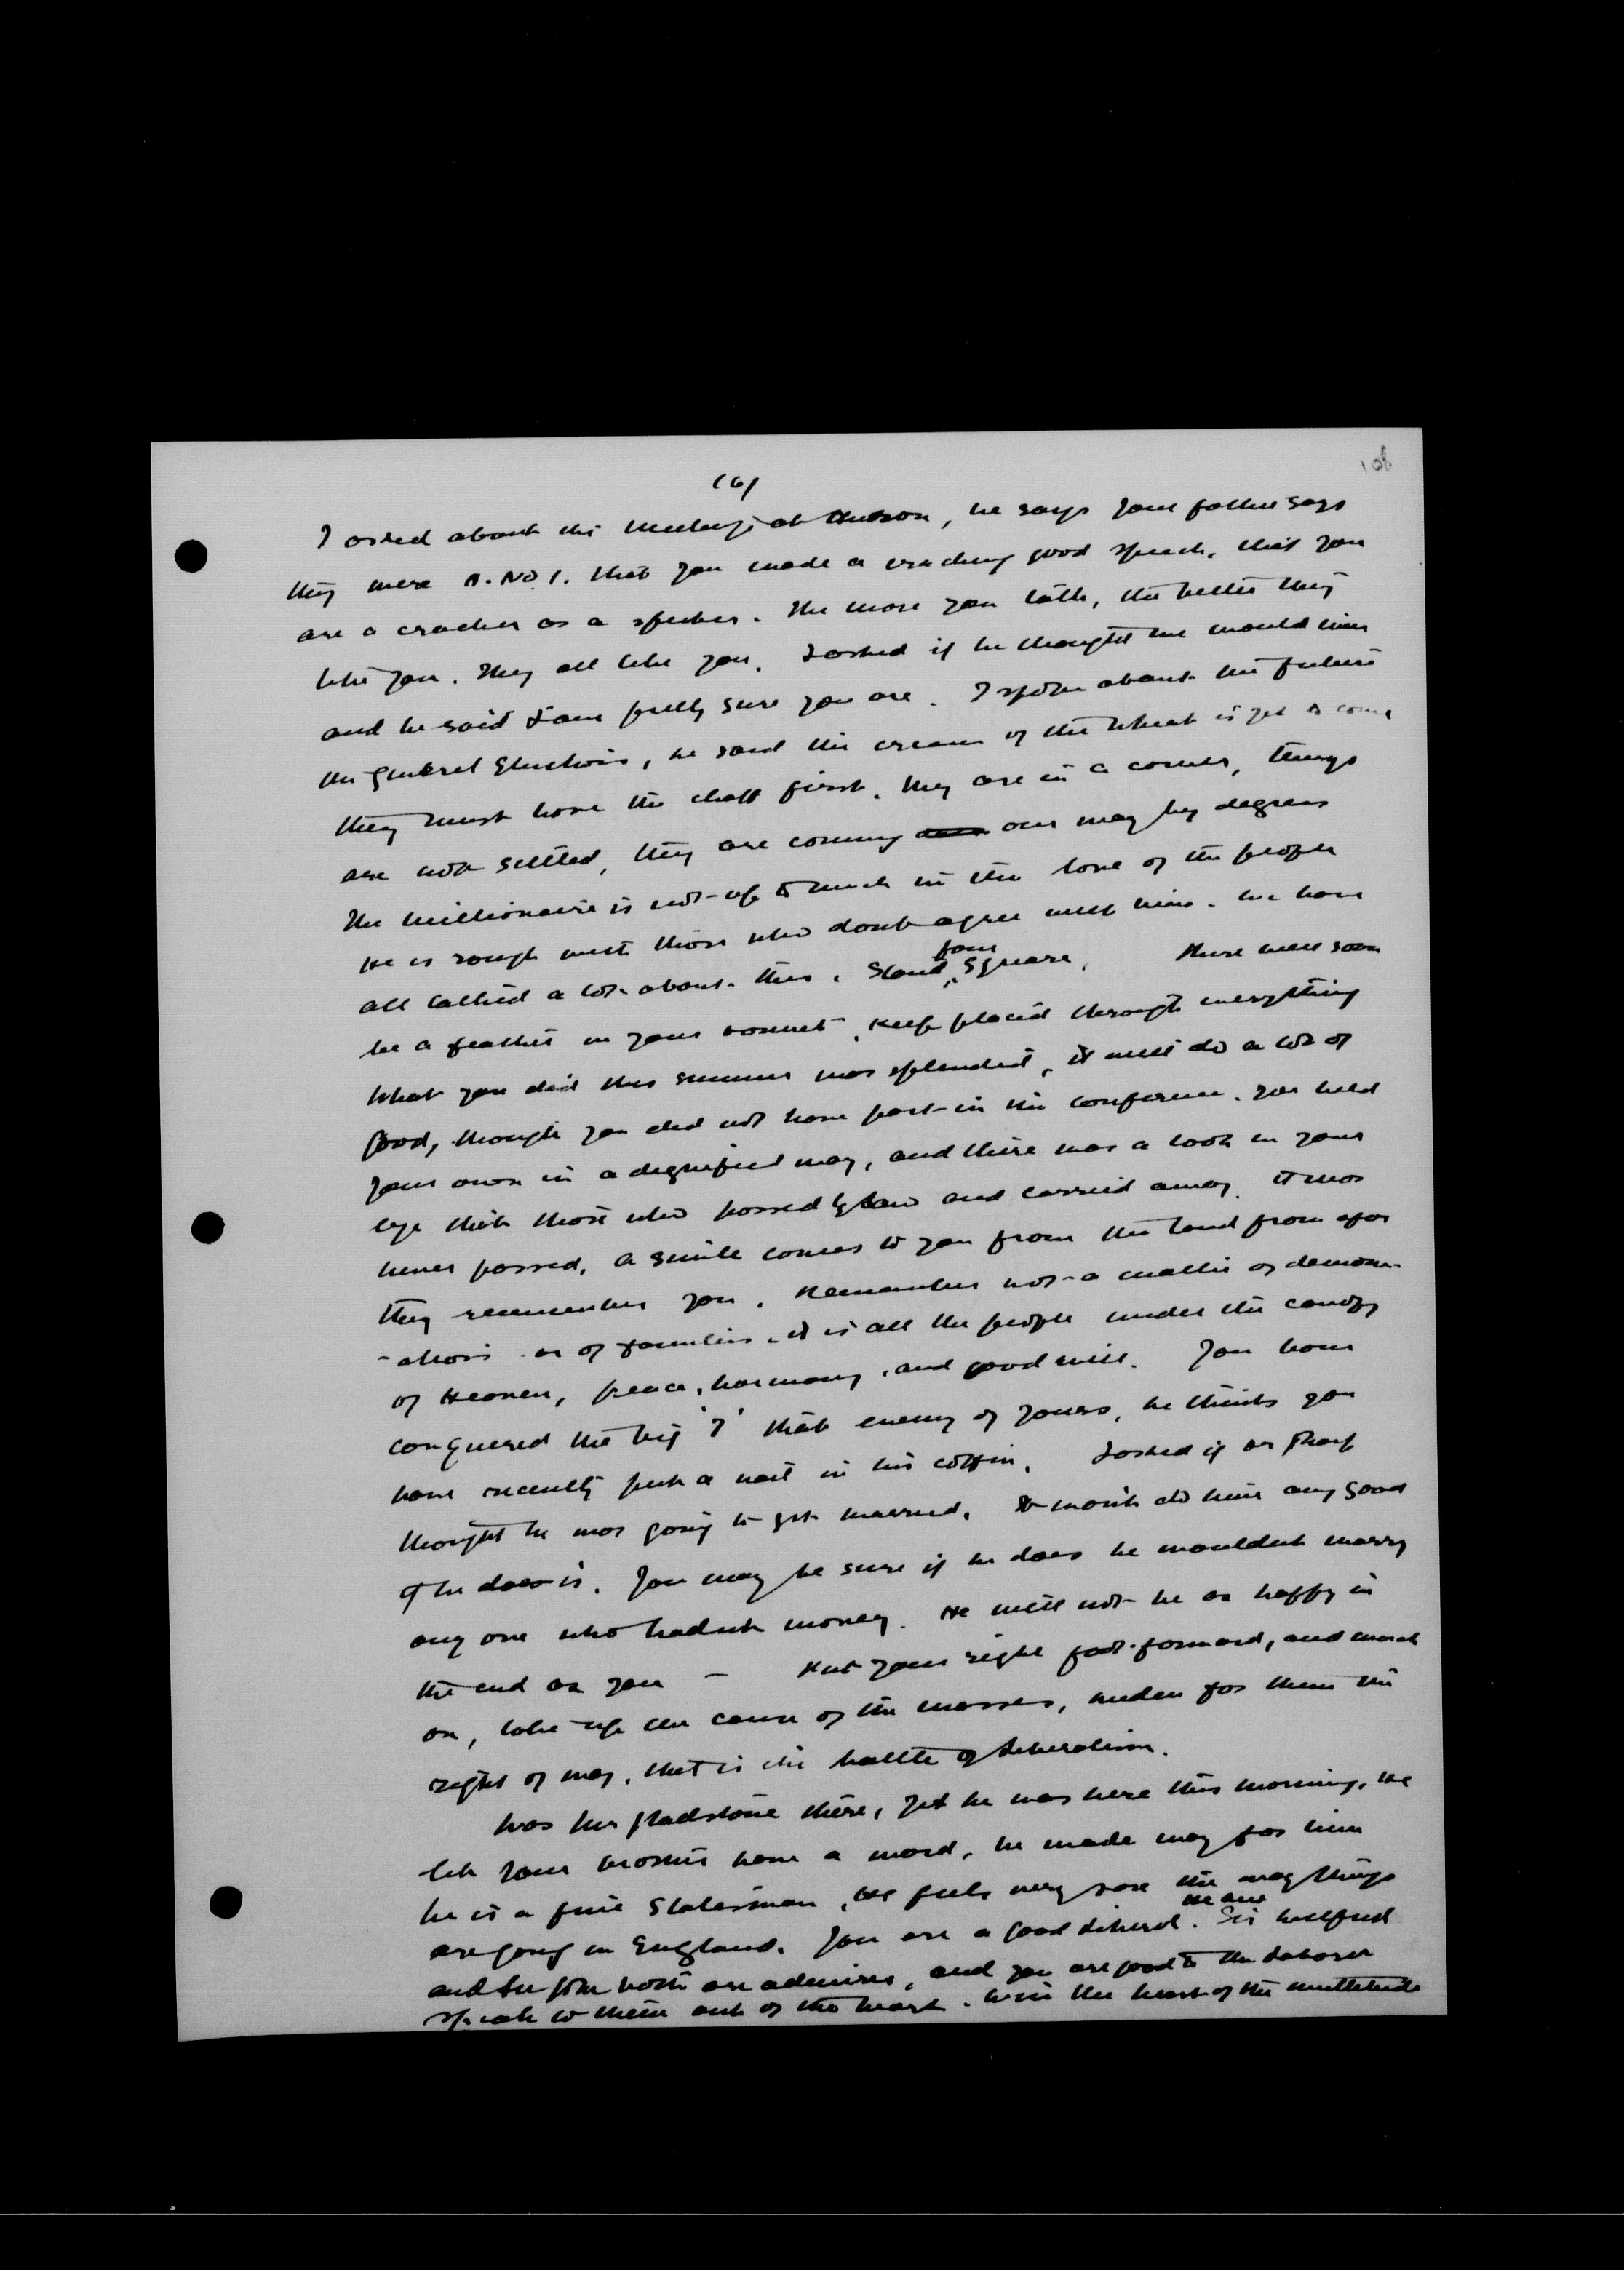 108
(6)
I asked about the meetings at Hudson, he says your father says
they were A. No 1. that you made a cracking good speech. that you
are a cracker as a speaker. The more you talk, the better they
like you. They all like you. I asked if he thought we would win
and he said I am pretty sure you are. I spoke about the future
the general Elections, he said the cream of the wheat is yet to come
they must have the chaff first. they are in a corner, things
are not settled, they are coming our way by degrees
The millionaire is not up to much in the love of the people
He is rough with those who dont agree with him. We have
all talked a lot about this. Stand four Square. There will soon
be a feather in your bonnet. Keep placid through everything
What you did this summer was splendid, it will do a lot of
good, though you did not have part in the conference. You held
your own in a dignified way, and there was a look in your
eye that those who passed by saw and carried away. It was
never passed, a smile comes to you from the land from afar
they remember you. Remember not a matter of denomin-
-ations or of families. it is all the people under the canopy
of Heaven, peace, harmony, and good will. You have
conquered the big 'I' that enemy of yours, he thinks you
have recently put a nail in his coffin. I asked if Mr
thought he was going to get married. It wont do him any good
if he does is. You may be sure if he does he wouldnt marry
any one who hadnt money. He will not be as happy in
the end as you — Put your right foot forward, and march
on, take up the cause of the masses, widen for them the
right of way. that is the battle of Liberalism.
Was Mr Gladstone there, Yes he was here this morning. He
let your brother have a word, he made way for him
he is a fine Statesman, He feels very sore the way things
are going in England. You are a good Liberal. He and Sir Wilfrid
and Sir John both are admirers, and you are good to the Laborer
speak to them out of the heart. Win the heart of the multitude